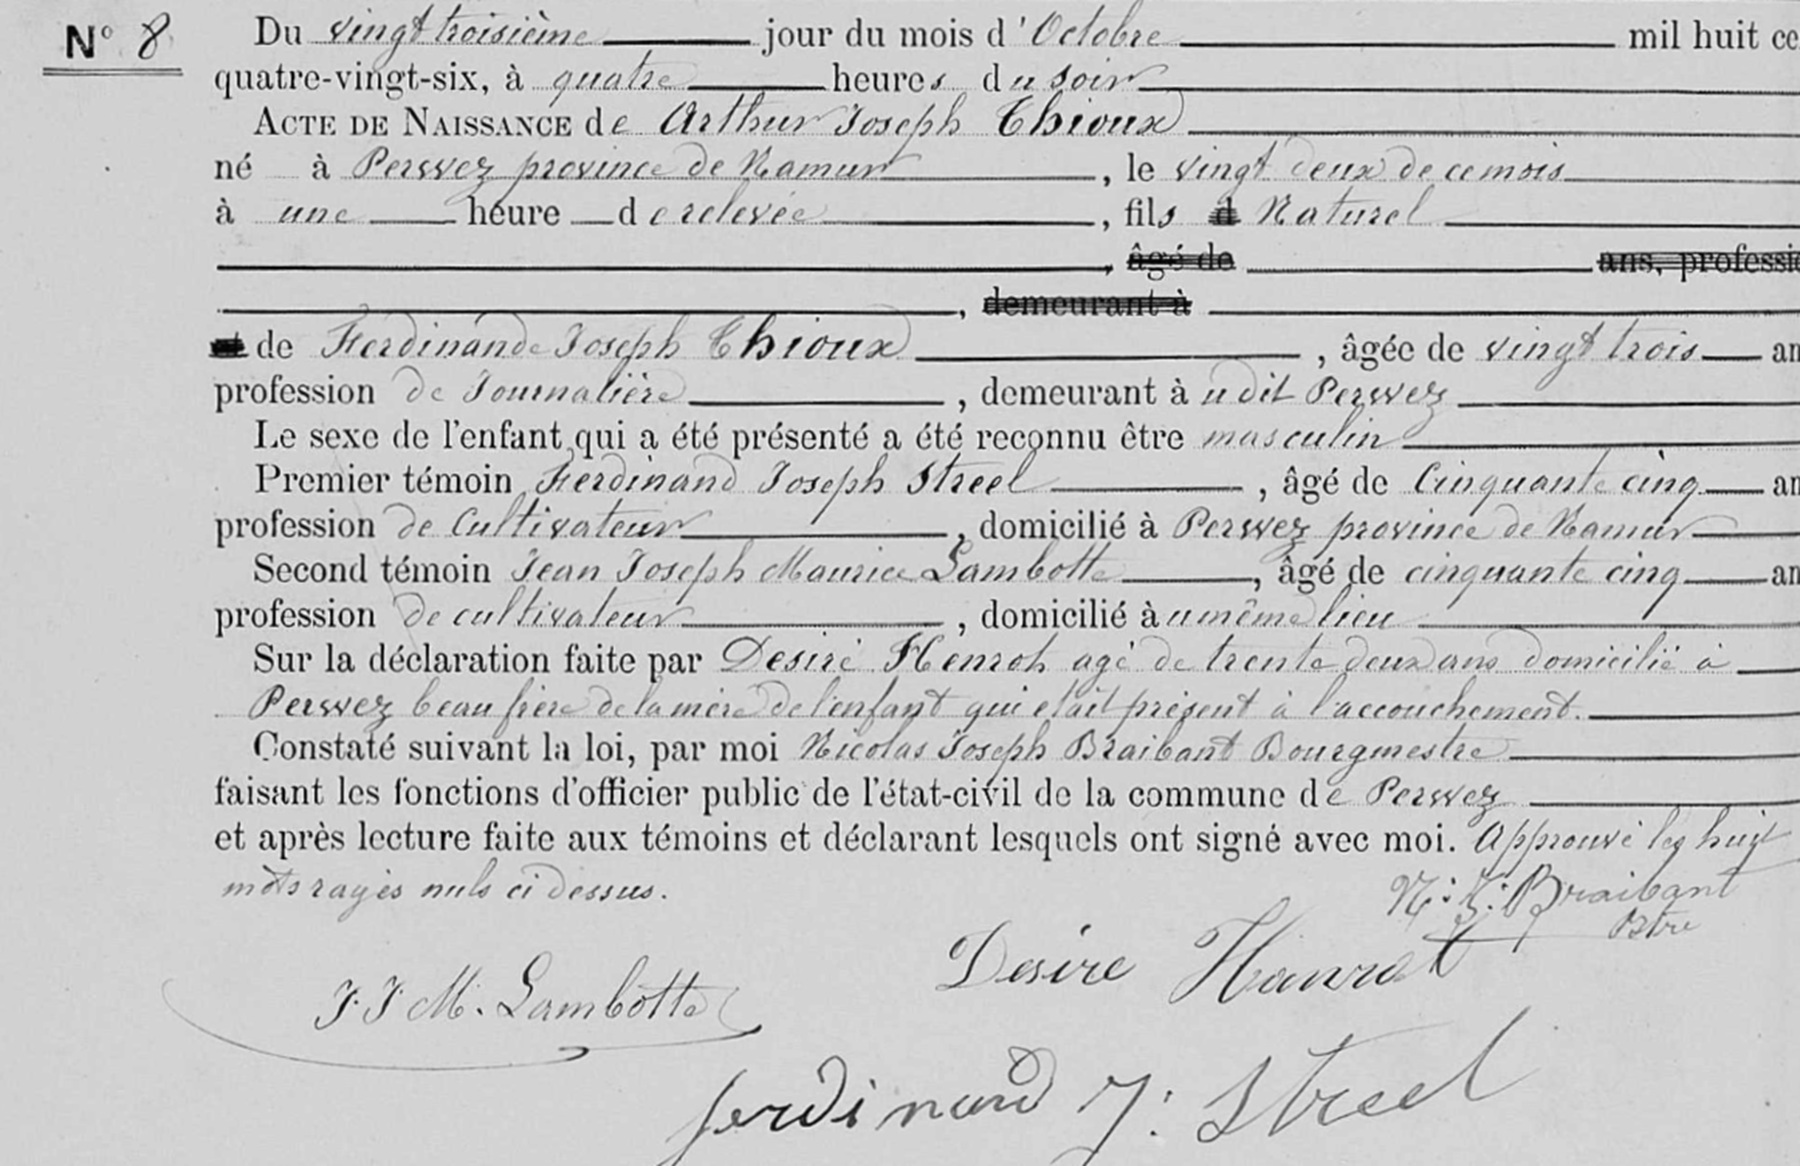 N° 8
Du vingt troisième jour du mois d'Octobre mil huit ce
quatre-vingt-six, à quatre heures du soir
ACTE DE NAISSANCE de Arthur Joseph Thioux
né à Perwez province de Namur, le vingt deux de ce mois
à une heure de relevée, fils d Naturel
, âgé de ans, professio
, demeurant à
et de Ferdinande Joseph Thioux, âgée de vingt trois an
profession de Journalière, demeurant à u dit Perwez
Le sexe de l'enfant qui a été présenté a été reconnu être masculin
Premier témoin Ferdinand Joseph Streel, âgé de Cinquante cinq an
profession de Cultivateur, domicilié à Perwez province de Namur
Second témoin Jean Joseph Maurice Lambotte, âgé de cinquante cinq an
profession de cultivateur, domicilié à u même lieu
Sur la déclaration faite par Desiré Henrot agé de trente deux ans domicilié à
Perwez beau frère de la mère de l'enfant qui etait présent à l'accouchement.
Constaté suivant la loi, par moi Nicolas Joseph Braibant Bourgmestre
faisant les fonctions d'officier public de l'état-civil de la commune de Perwez
et après lecture faite aux témoins et déclarant lesquels ont signé avec moi. Approuvé les huit
mots rayés nuls ci dessus.
N: J: Braibant
Bstre
Desire Hanrot
J. J M. Lambotte
ferdinand J: Streel